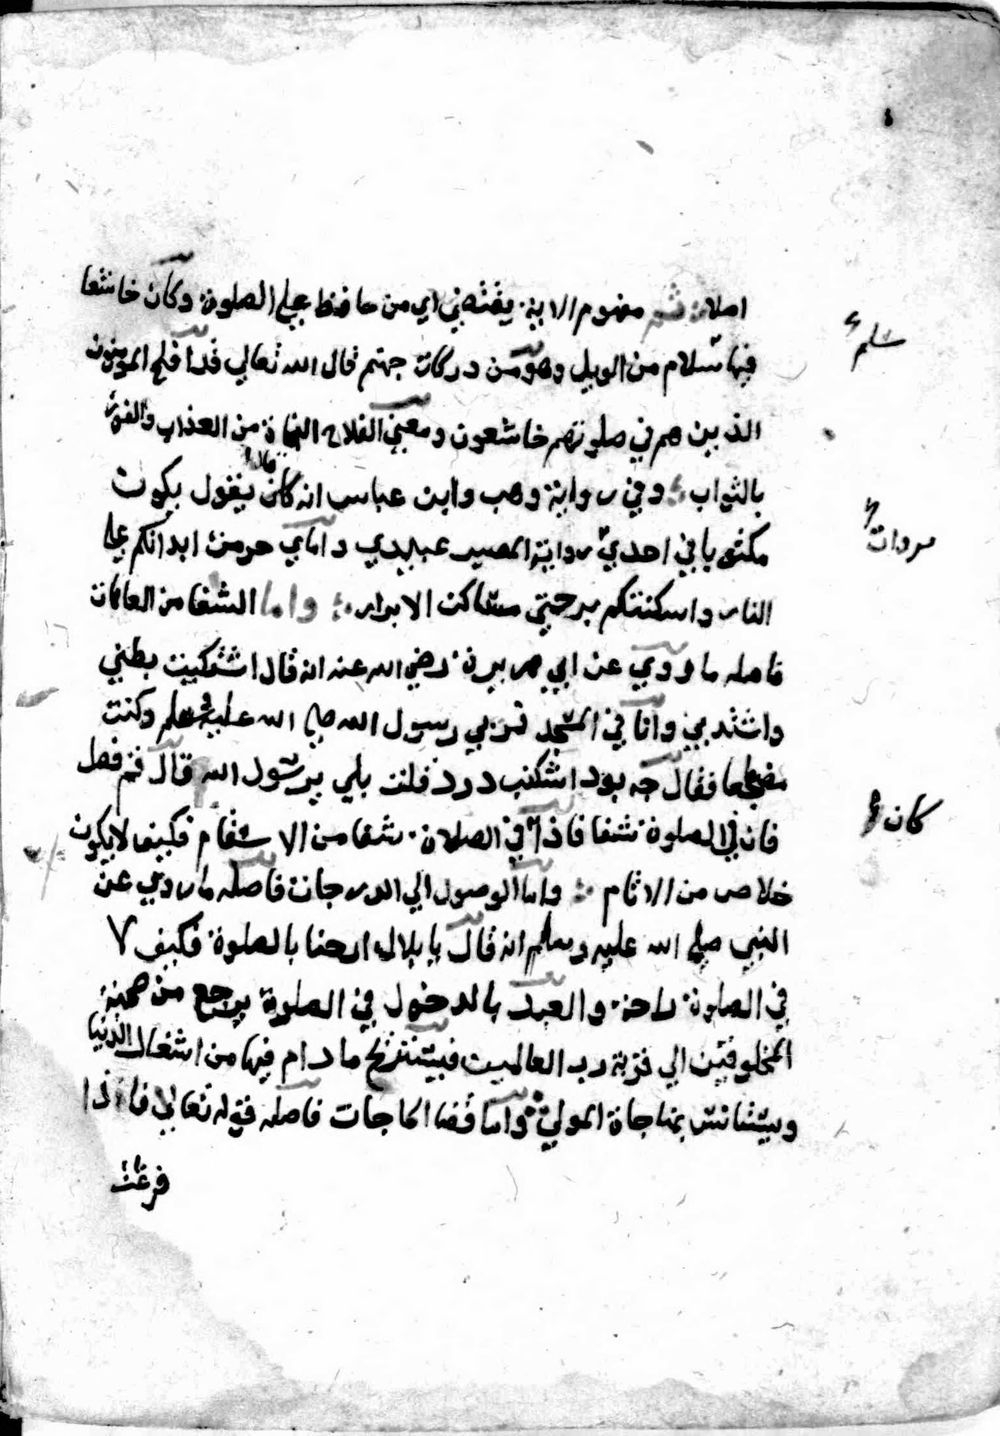 اصلا ثم مفهوم الاية يقتضي اي من حافظ علي الصلوة وكان خاشعا
فيها سلام من الويل وهو من دركات جهنم قال الله تعالي قد افلح المومنون
الذين هم في صلوتهم خاشعون ومعني الفلاح النجاة من العذاب والفوز
بالثواب وفي رواية وهب وابن عباس انه كان يقول يكون
مكتوبا في احدي المصير عبيدي واماي حرمت ابدانكم علي
النار واسكنتكم برحمتي مساكن الابرار واما الشفا من العاهات
فاصله ما روي عن ابي هريرة رضي الله عنه انه قال اشتكيت بطني
واشتد بي وانا في المسجد فمر بي رسول الله صلي الله عليه وسلم وكنت
مضطجعا فقال جه بود اشكنب درد فقلت بلي يرسول الله قال قم فصل
فان في الصلوة شفا فاذا في الصلاة شفا من الاسقام فكيف لا يكون
خلاص من الاثام واما الوصول الي الدرجات فاصله ما روي عن
النبي صلي الله عليه وسلم انه قال يا بلال ارحنا بالصلوة فكيف لا
في الصلوة راحة والعبد بالدخول في الصلوة يرجع من صحبة
المخلوقين الي قربة رب العالمين فيستريح ما دام فيها من اشغال الدنيا
ويستانس بمناجاة المولي واما قضا الحاجات فاصله قوله تعالي فاذا
فرغت
سلم
كان